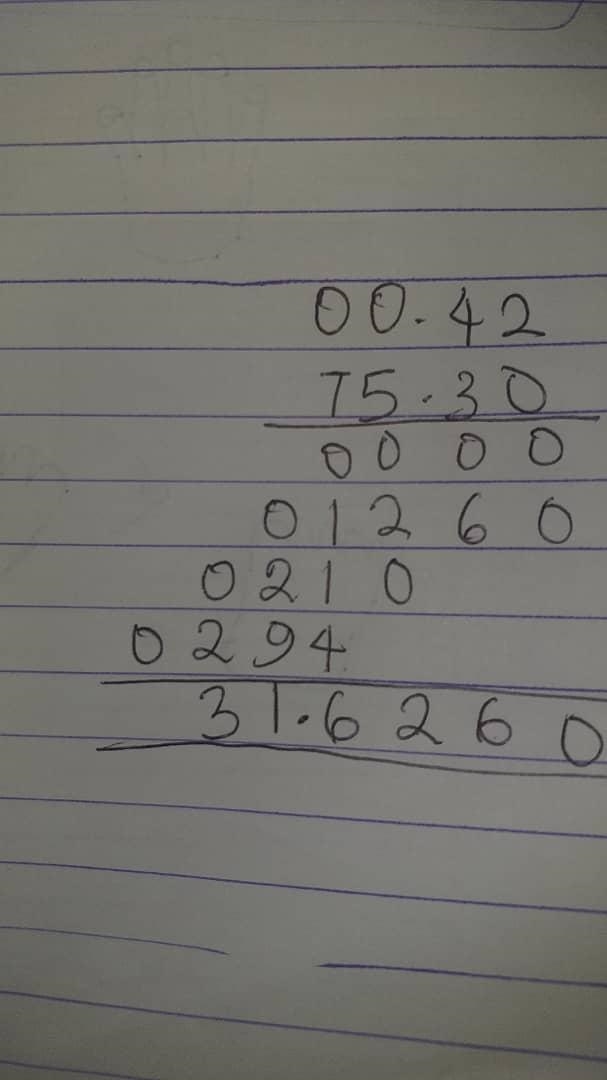 00.42
75.30
0000
01260
0210
0294
31.6260